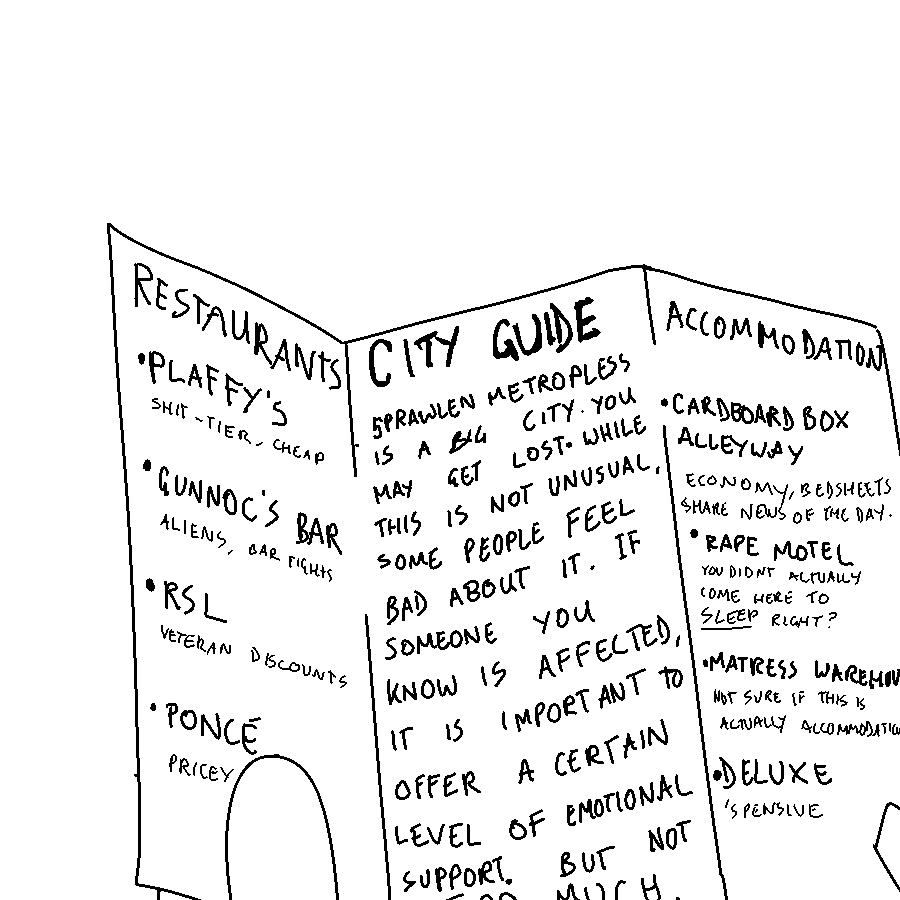 RESTAURANTS
•PLAFFY'S
SHIT-TIER, CHEAP
•GUNNOC'S BAR
ALIENS, BAR FIGHTS
•RSL
VETERAN DISCOUNTS
•PONCÉ
PRICEY
CITY GUIDE
SPRAWLEN METROPLESS
IS A BIG CITY. YOU
MAY GET LOST. WHILE
THIS IS NOT UNUSUAL,
SOME PEOPLE FEEL
BAD ABOUT IT. IF
SOMEONE YOU
KNOW IS AFFECTED,
IT IS IMPORTANT TO
OFFER A CERTAIN
LEVEL OF EMOTIONAL
SUPPORT. BUT NOT
TOO MUCH.
ACCOMMODATION
•CARDBOARD BOX
ALLEYWAY
ECONOMY, BEDSHEETS
SHARE NEWS OF THE DAY.
•RAPE MOTEL
YOU DIDNT ACTUALLY
COME HERE TO
SLEEP RIGHT?
•MATRESS WAREHOU
NOT SURE IF THIS IS
ACTUALLY ACCOMMODATIO
•DELUXE
'SPENSIVE